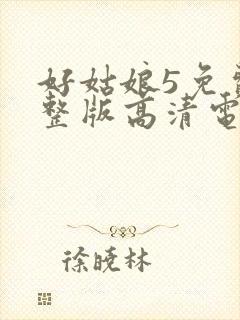 好姑娘5免
整版高清電
徐曉林